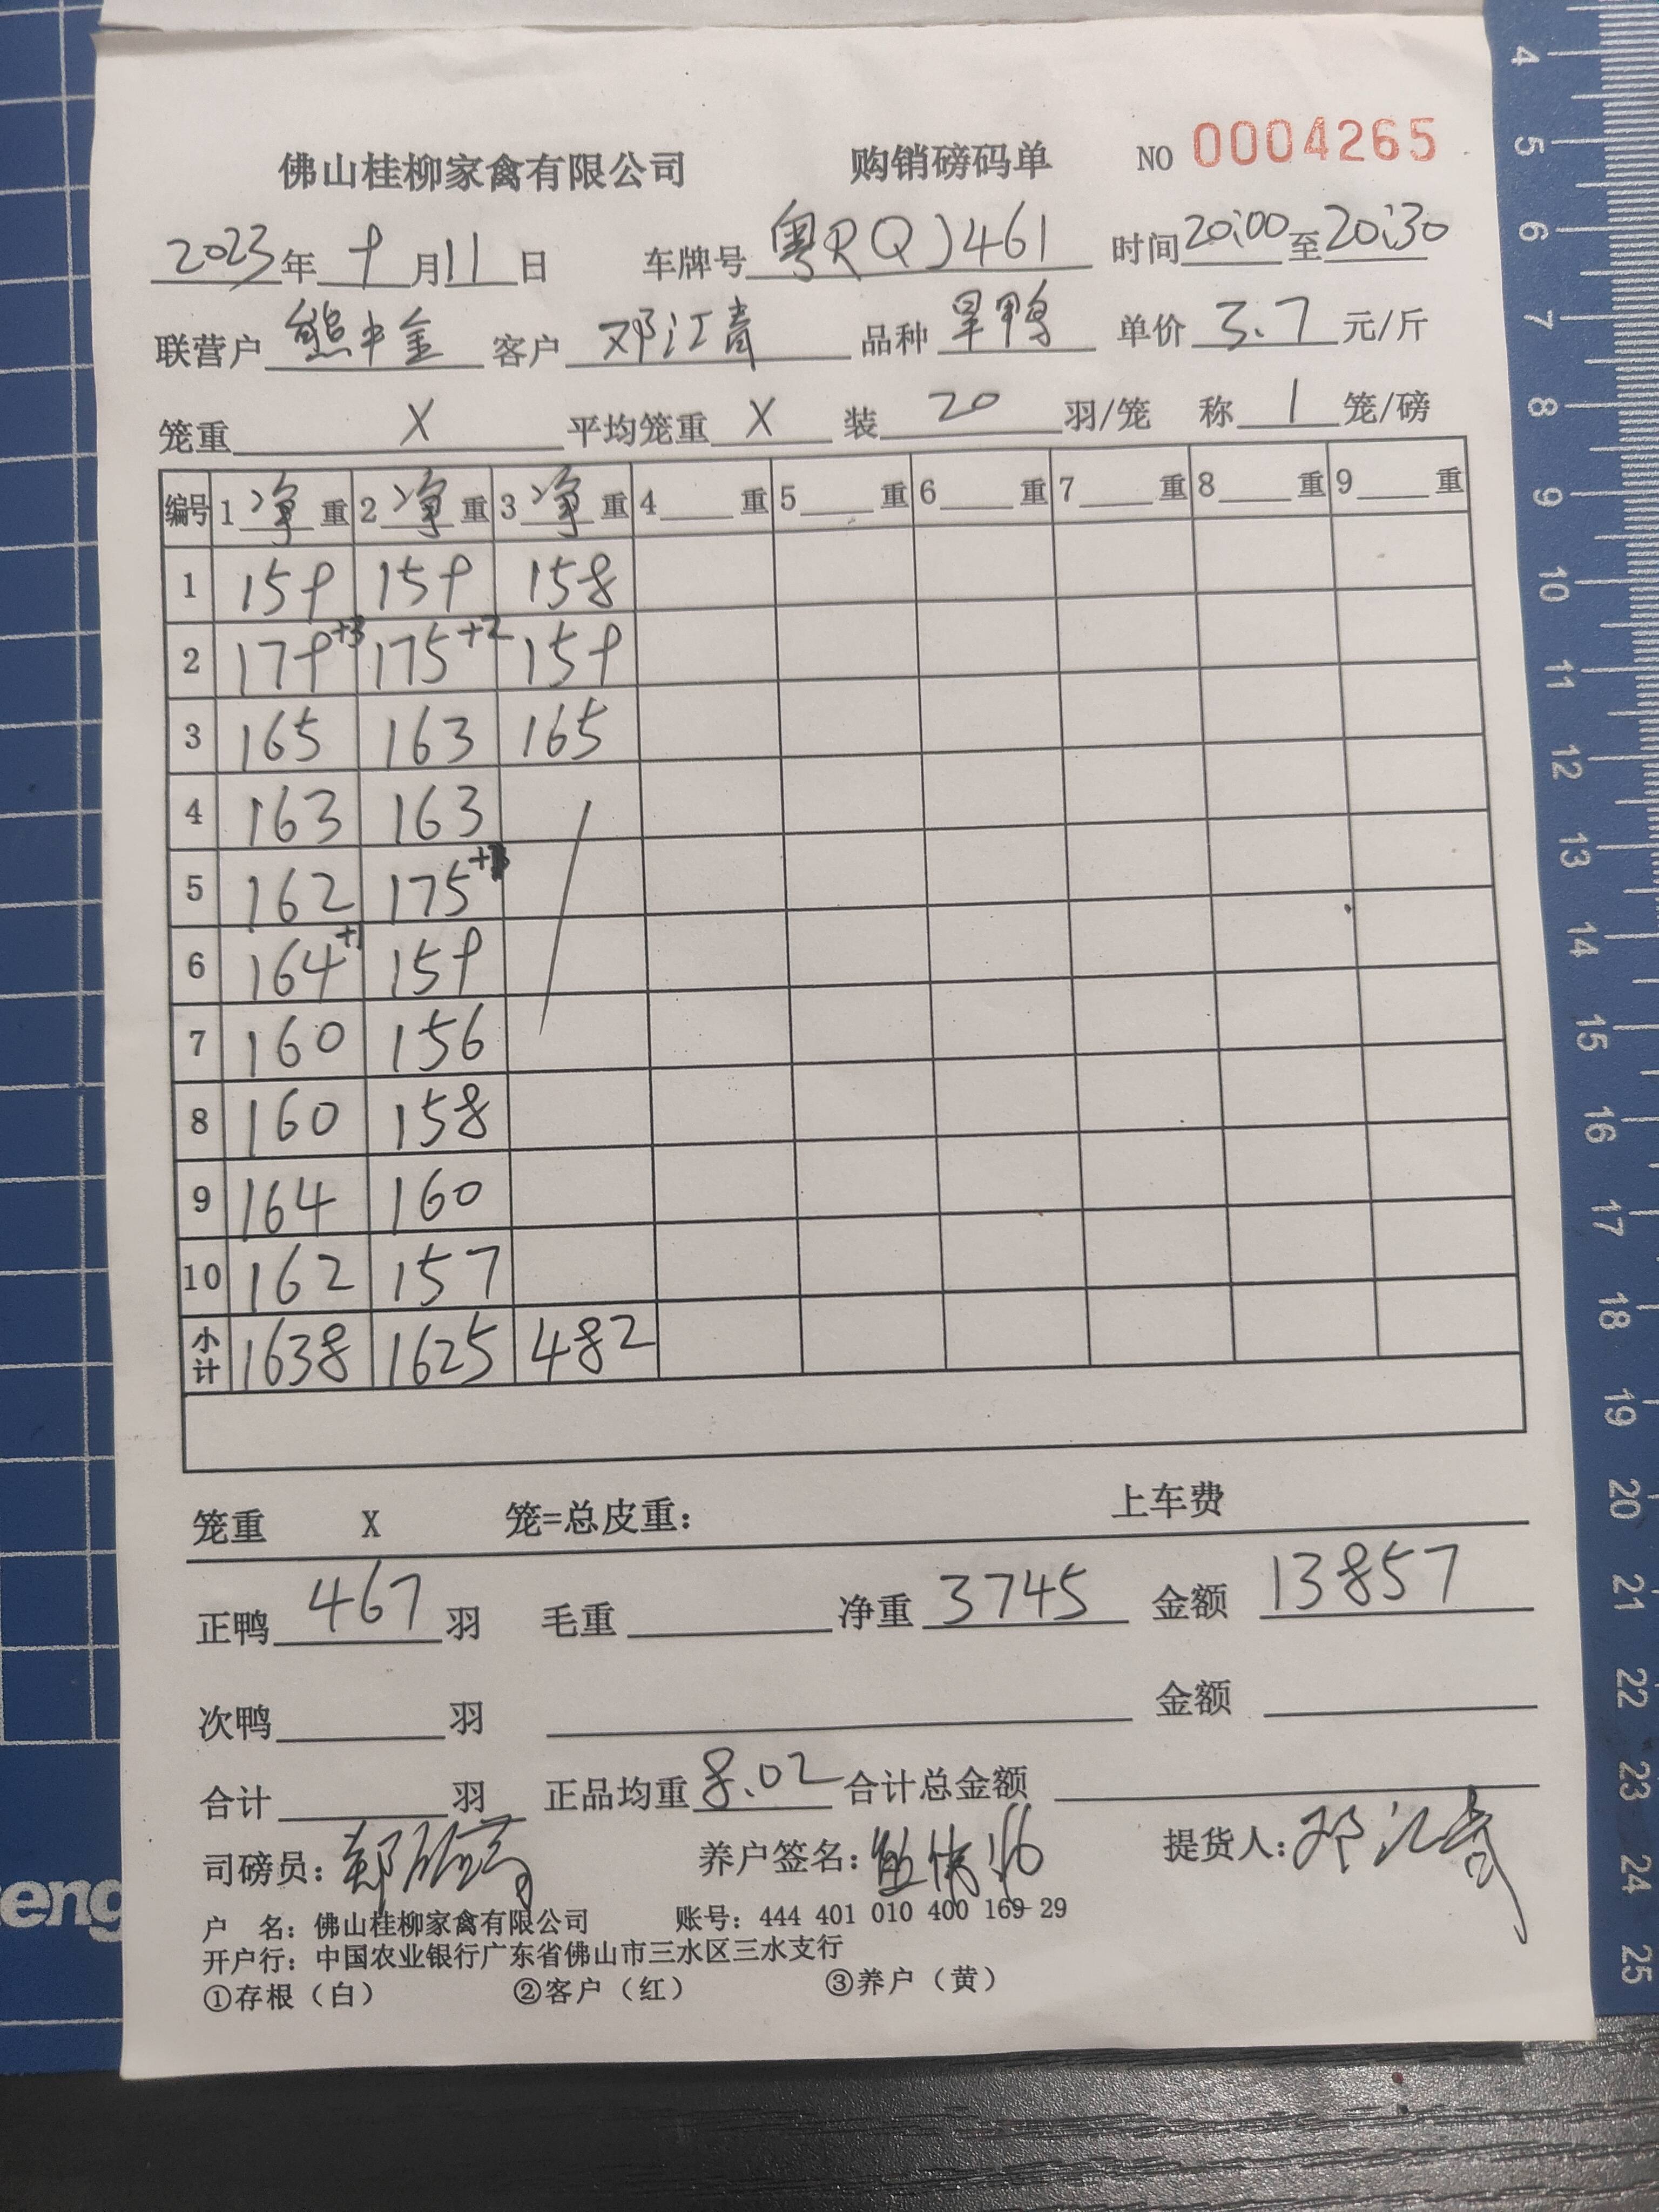 佛山桂柳家禽有限公司 购销磅码单 NO 0004265
2023年 9月11日 车牌号 粤RQJ461 时间20:00至20:30
联营户 熊中金 客户 邓江青 品种 旱鸭 单价 3.7 元/斤
笼重 X 平均笼重 X 装 20 羽/笼 称 1 笼/磅
编号 1净重 2净重 3净重 4重 5重 6重 7重 8重 9重
1 159 159 158
2 179+3 175+2 159
3 165 163 165
4 163 163
5 162 175
6 164+1 159
7 160 156
8 160 158
9 164 160
10 162 157
小计 1638 1625 482
笼重 X 笼=总皮重: 上车费
正鸭 467 羽 毛重 净重 3745 金额 13857
次鸭 羽 金额
合计 羽 正品均重 8.02 合计总金额
司磅员: 养户签名: 提货人: 邓江青
户 名: 佛山桂柳家禽有限公司 账号: 444 401 010 400 169-29
开户行: 中国农业银行广东省佛山市三水区三水支行
①存根（白） ②客户（红） ③养户（黄）
eng
4
5
6
7
8
9
10
11
12
13
14
15
16
17
18
19
20
21
22
23
24
25